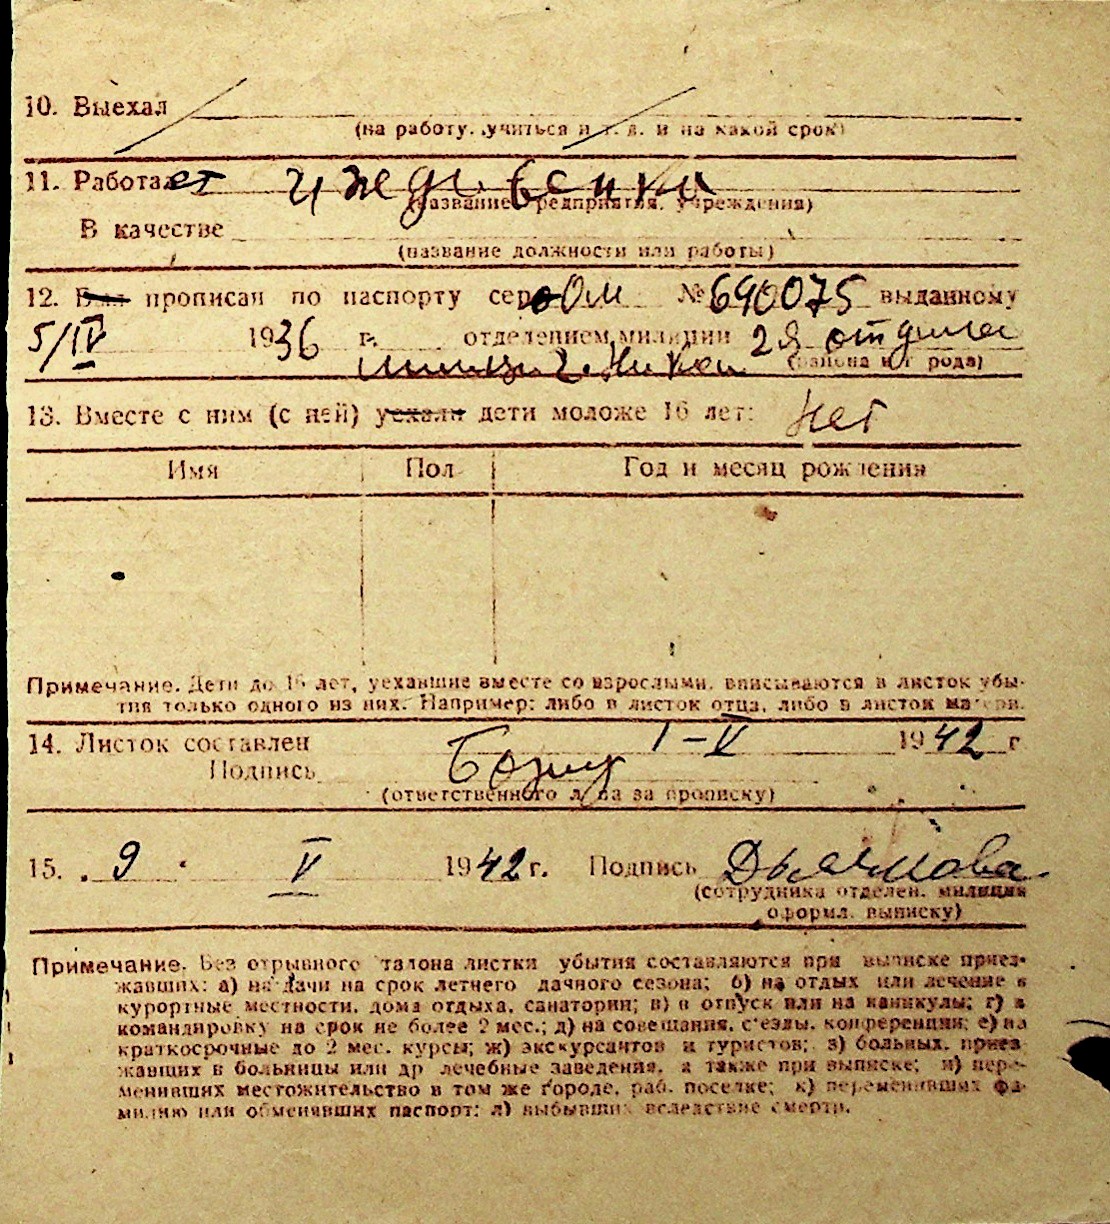 10. Выехал
(на работу, учиться и т. д. и на какой срок)
11. Работает иждивенка
(название предприятия, учреждения)
В качестве
(название должности или работы)
12. Был прописан по паспорту серо ОМ № 640075 выданному
5/IV 1936 г. отделением милиции 2й отдела
(района и г рода)
13. Вместе с ним (с ней) уехали дети моложе 16 лет: нет
Имя Пол Год и месяц рождения
Примечание. Дети до 16 лет, уехавшие вместе со взрослыми, вписываются в листок убы-
тия только одного из них. Например: либо в листок отца, либо в листок матери.
14. Листок составлен 1-V 1942 г
Подпись
(ответственного лица за прописку)
15. 9 V 1942 г. Подпись
(сотрудника отделен. милиции
оформл. выписку)
Примечание. Без отрывного талона листки убытия составляются при выписке приез-
жавших: а) на дачи на срок летнего дачного сезона; б) на отдых или лечение в
курортные местности, дома отдыха, санатории; в) в отпуск или на каникулы; г) в
командировку на срок не более 2 мес.; д) на совещания, с'езды, конференции; е) на
краткосрочные до 2 мес. курсы; ж) экскурсантов и туристов; з) больных, приез
жавших в больницы или др лечебные заведения, а также при выписке; и) пере-
менивших местожительство в том же городе, раб. поселке; к) переменивших фа-
милию или обменявших паспорт; л) выбывших вследствие смерти.